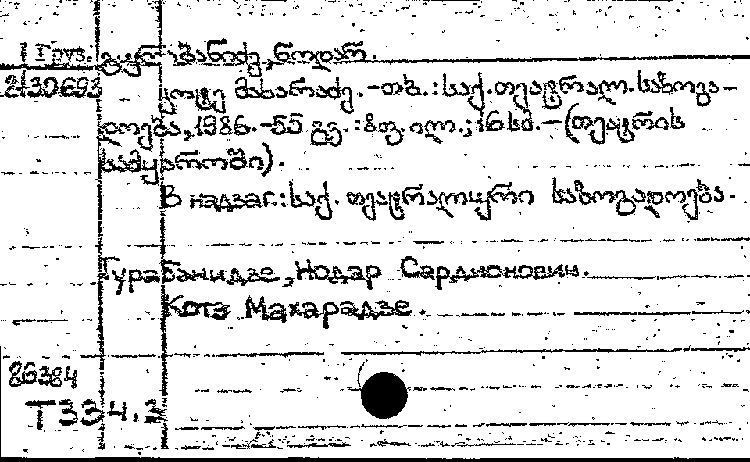 1 Груз. გურაბანიძე, ნოდარ.
2130693
კოტე მახარაძე. -თბ.: საქ. თეატრალ. საზოგა-
დოება, 1986. -55 გვ.: 8 ფ. ილ.; 16 სმ. - (თეატრის
სამყაროში).
В надзаг.: საქ. თეატრალური საზოგადოება.
Гурабанидзе, Нодар Сардионович.
Котэ Махарадзе.
86384
Т 334.3